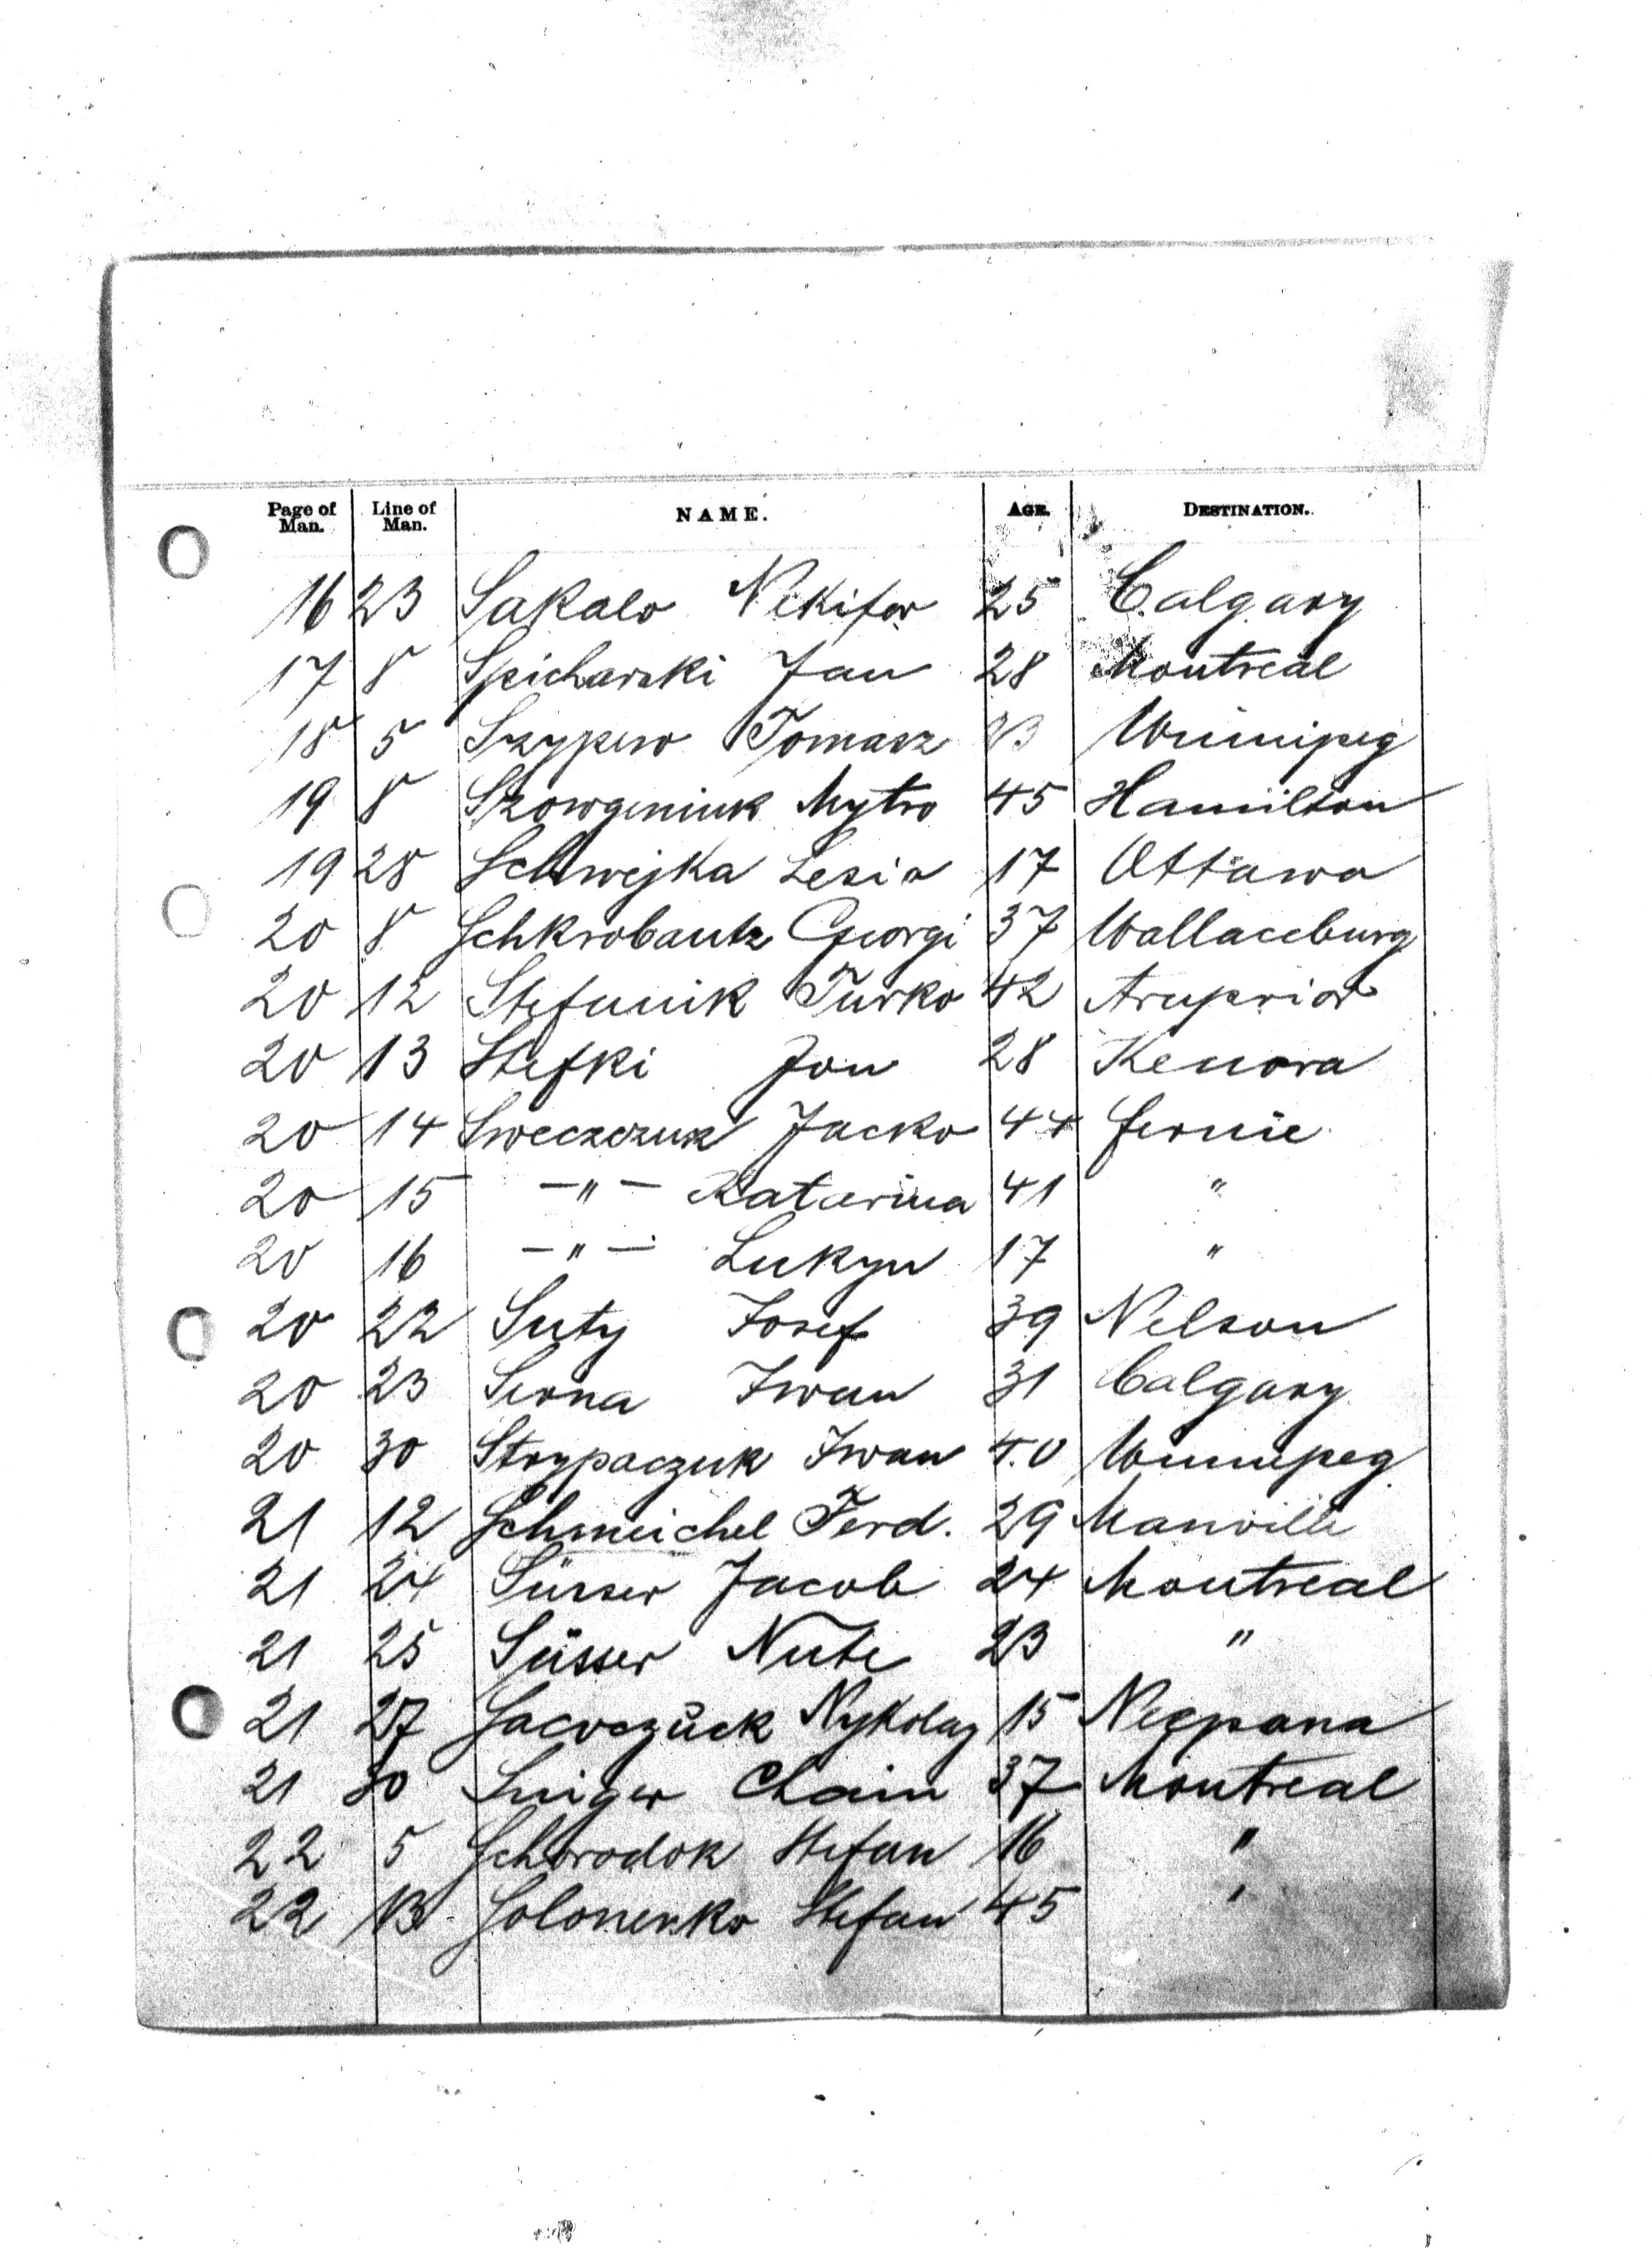 Page of Man. Line of Man. NAME. AGE. DESTINATION.
16 23 Sakalo Nekifor 25 Calgary
17 8 Spicharski Jan 28 Montreal
18 5 Szypew Tomasz 23 Winnipeg
19 8 Szowgeniuk Mytro 45 Hamilton
19 28 Schwejka Lesia 17 Ottawa
20 8 Schkrobautz Georgi 37 Wallaceburg
20 12 Stefunik Turko 42 Arnprior
20 13 Stefki Jon 28 Kenora
20 14 Sweczczuk Jacko 44 Fernie
20 15 -"- Katarina 41 "
20 16 -"- Lukyn 17 "
20 22 Suty Josef 39 Nelson
20 23 Serna Iwan 31 Calgary
20 30 Strypaczuk Iwan 40 Winnipeg
21 12 Schmeichel Ferd. 29 Manville
21 24 Süsser Jacob 24 Montreal
21 25 Süsser Nute 23 "
21 27 Sacvczŭck Nykolaj 15 Neepana
21 30 Chaim 37 Montreal
22 5 Schorodok Stefan 16 "
22 13 Solonenko Stefan 45 "